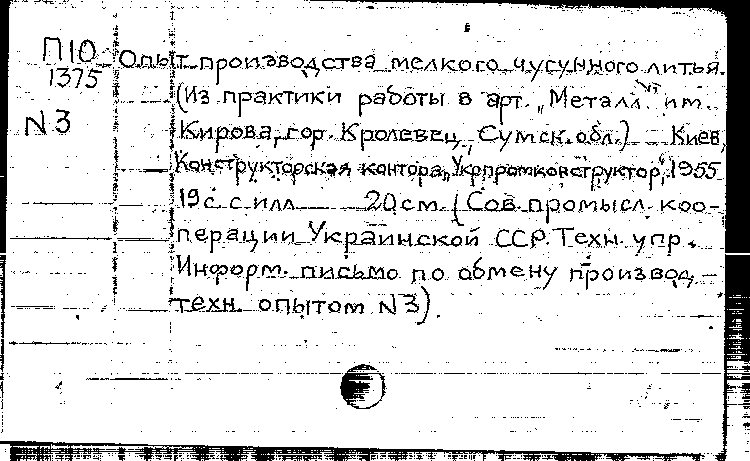 П10
1375
N3
Опыт производства мелкого чугунного литья.
(Из практики работы в арт. „Металл" им.
Кирова, гор. Кролевец, Сумск. обл.) Киев,
Конструкторская контора „Укрпромконструктор", 1955
19 с. с илл. 20 см. (Сов. промысл. коо-
перации Украинской ССР. Техн. упр.
Информ. письмо по обмену производ.-
техн. опытом N3).